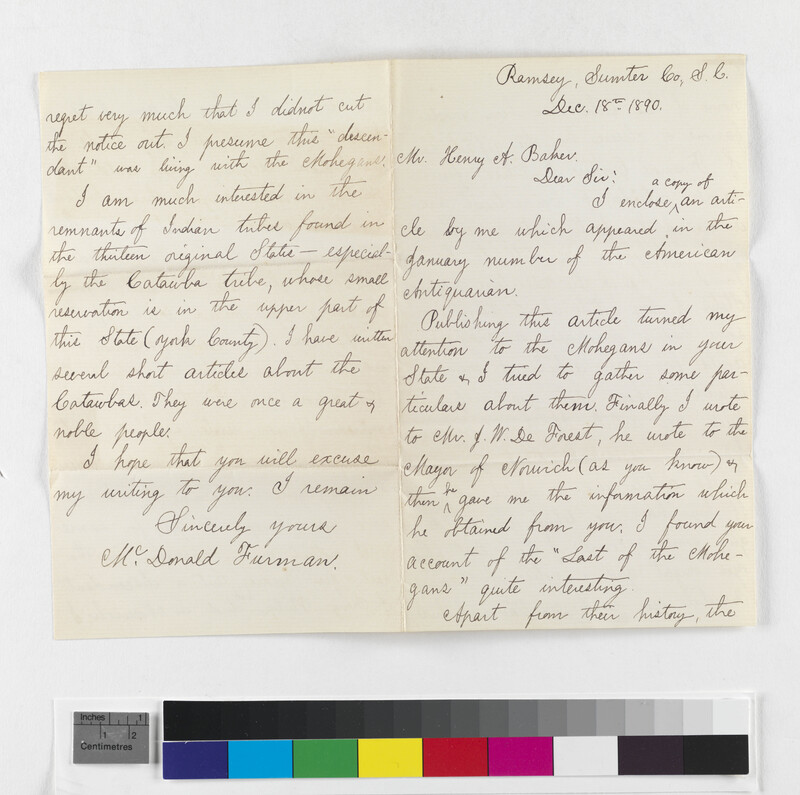 Ramsey, Sumter Co, S. C.
Dec. 18th 1890.
Mr. Henry A. Baker.
Dear Sir:
a copy of
I enclose ‸ an arti-
cle by me which appeared in the
January number of the American
Antiquarian.
Publishing this article turned my
attention to the Mohegans in your
State & I tried to gather some par-
ticulars about them. Finally I wrote
to Mr. J. W. De Forest, he wrote to the
Mayor of Norwich (as you know) &
then ‸he gave me the information which
he obtained from you. I found your
account of the "Last of the Mohe-
gans" quite interesting.
Apart from their history, the
regret very much that I didnot cut
the notice out. I presume this "descen-
dant" was living with the Mohegans.
I am much interested in the
remnants of Indian tribes found in
the thirteen original States — especial-
ly the Catawba tribe, whose small
reservation is in the upper part of
this State (york County). I have written
several short articles about the
Catawbas. They were once a great &
noble people.
I hope that you will excuse
my writing to you. I remain
Sincerely yours
Mc. Donald Furman.
Inches 1
1 2
Centimetres